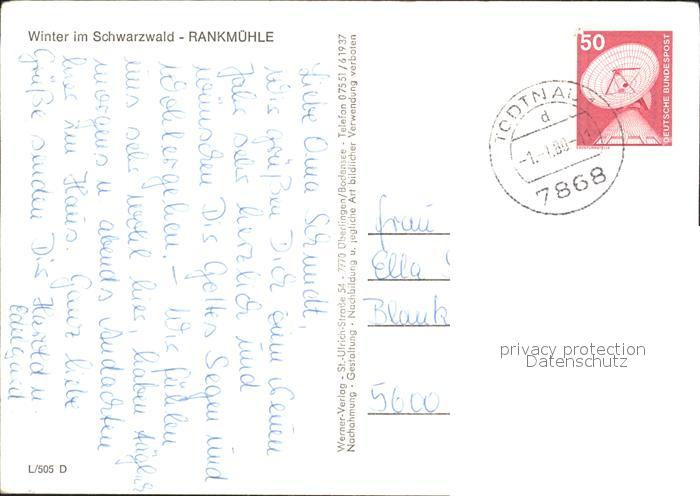 Winter im Schwarzwald - RANKMÜHLE
Liebe Oma Schmidt,
Wir grüßen Dich zum neuen
Jahr sehr herzlich und
wünschen Dir Gottes Segen und
Wohlergehen. - Wir fühlen
uns sehr wohl hier, haben täglich
morgens u. abends Andachten
hier im Haus. Ganz liebe
Grüße senden Dir
L/505 D
Werner-Verlag - St.-Ulrich-Straße 54 - 7770 Überlingen/Bodensee - Telefon 07551/61937
Nachahmung - Gestaltung - Nachbildung u. jegliche Art bildlicher Verwendung verboten
50
DEUTSCHE BUNDESPOST
TODTNAU
d
7868
Frau
Ella
Blank
5600
privacy protection
Datenschutz